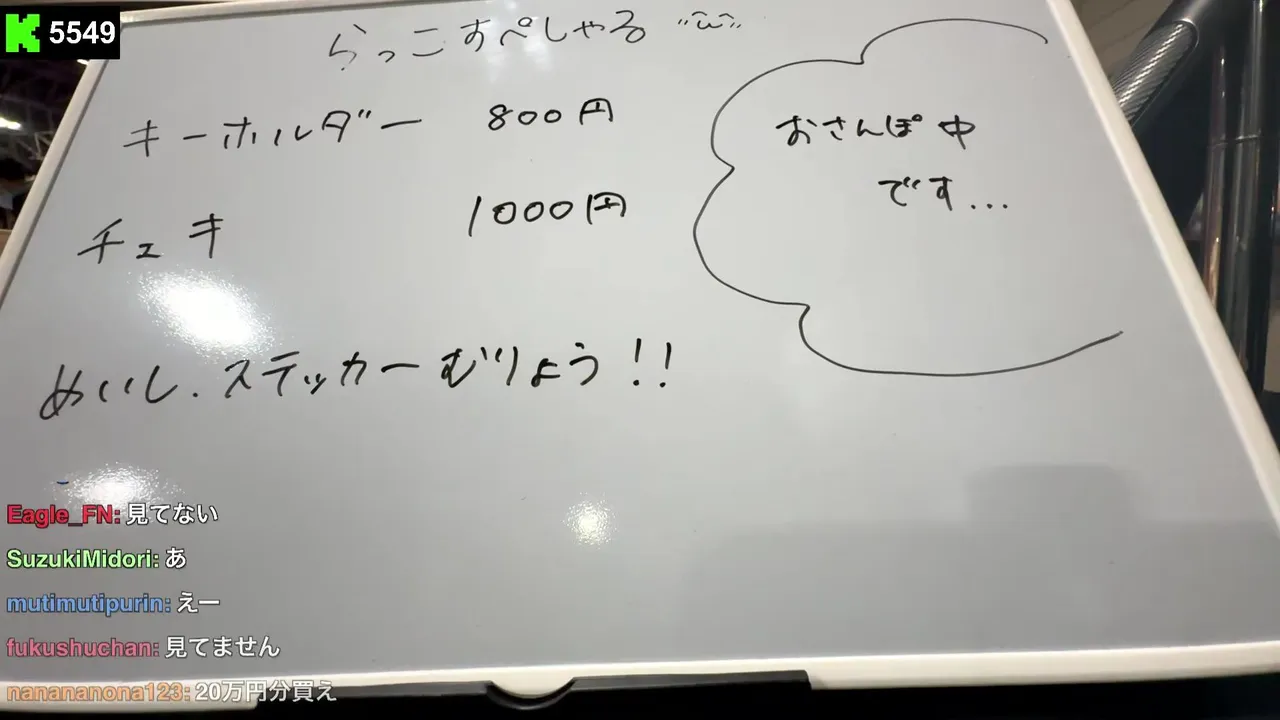 5549
らっこすぺしゃる
キーホルダー 800円
チェキ 1000円
めいし.ステッカーむりょう!!
おさんぽ中
です...
Eagle_FN: 見てない
SuzukiMidori: あ
mutimutipurin: えー
fukushuchan: 見てません
nanananona123: 20万円分買え